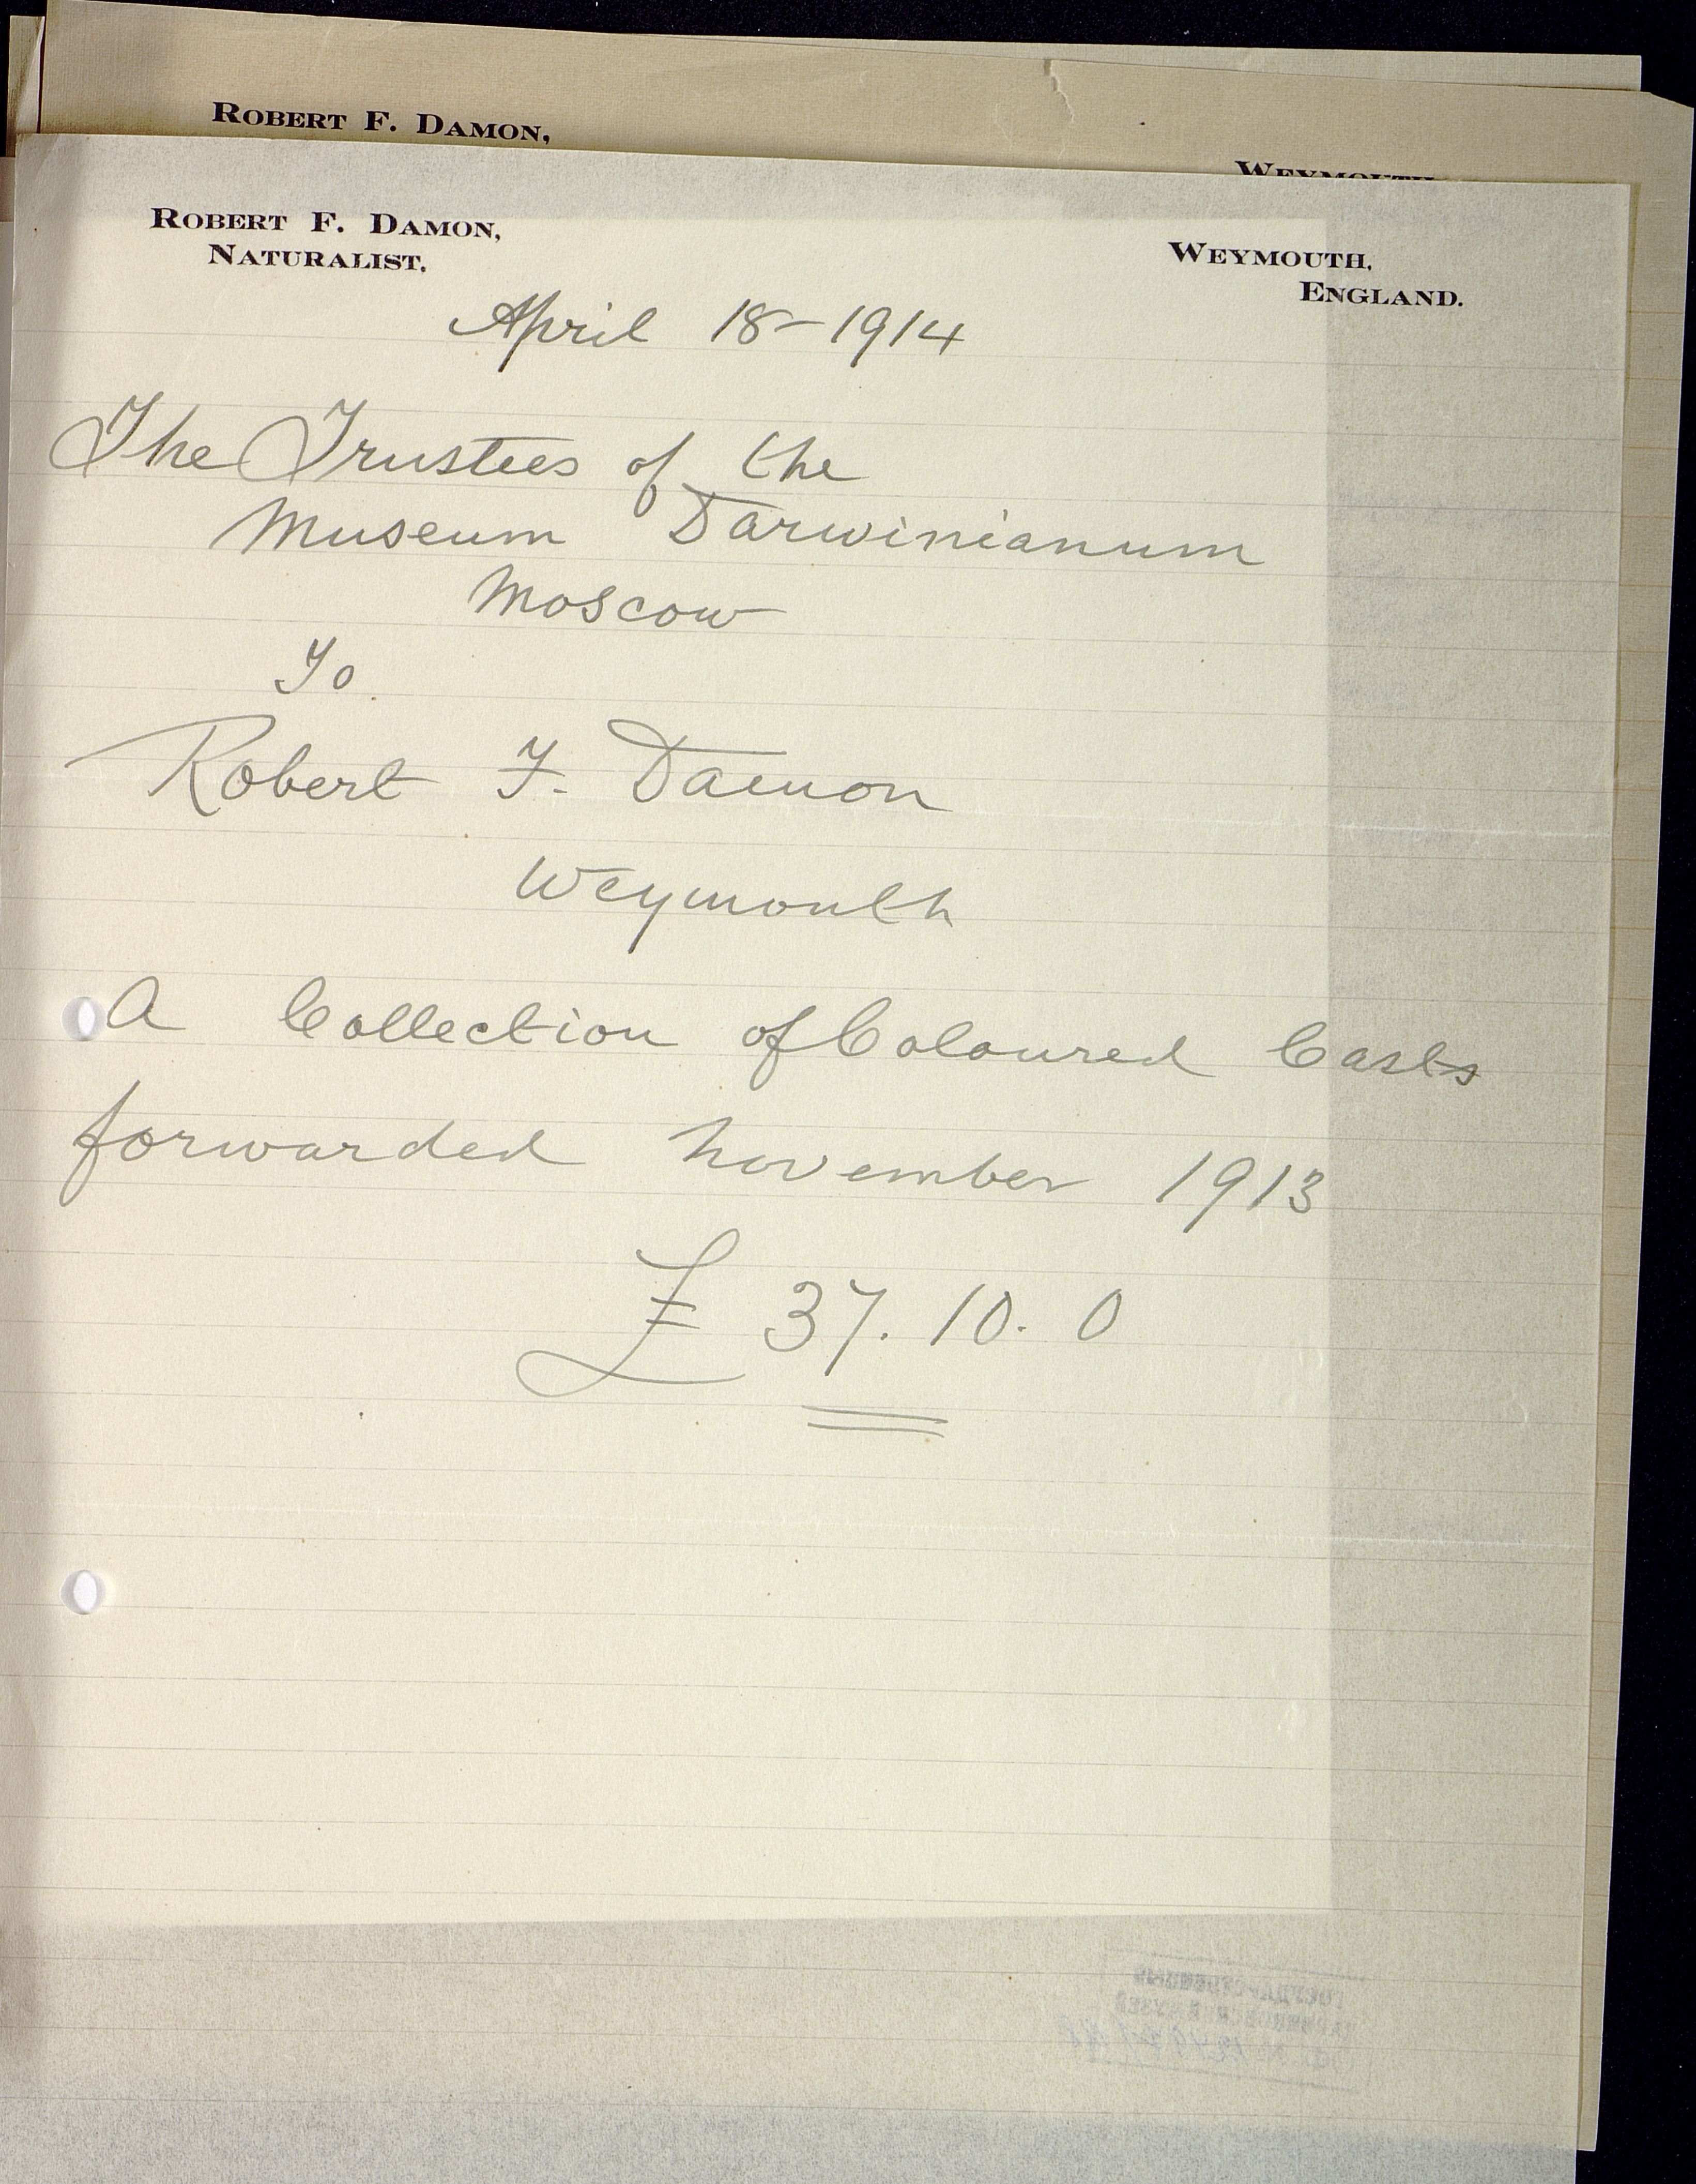 ROBERT F. DAMON,
WEYMOUTH
ROBERT F. DAMON,
NATURALIST.
WEYMOUTH,
ENGLAND.
April 18-1914
The Trustees of the
Museum Darwinianum
Moscow
To
Robert F. Damon
Weymouth
A Collection of Coloured Casts
forwarded November 1913
£ 37. 10. 0